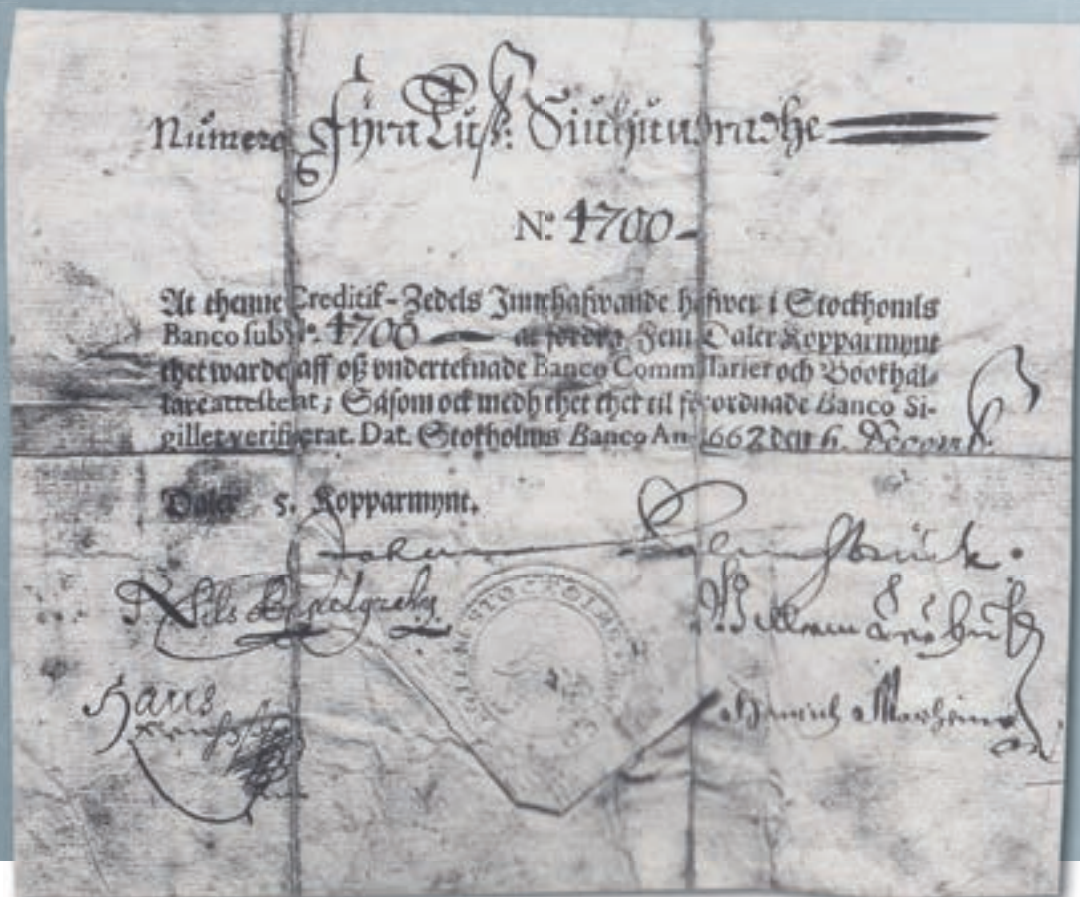 Numero Fÿra Tuß: Siuhundradhe
N:º 4700
At thenne Creditif-Zedels Innehafwande hafwer i Stockholms
Banco sub N:º 4700 at fordra Fem Daler Kopparmynt
thet warde aff oß vnderteknade Banco Commissarier och Bookhål-
lare attesterat; Såsom ock medh thet thet til förordnade Banco Si-
gillet verificerat. Dat. Stokholms Banco An 1662 den 6. Decemb.
Daler 5. Kopparmynt.
Johan Palmstruck.
STOCKHOLMS
Hans
Hinrich